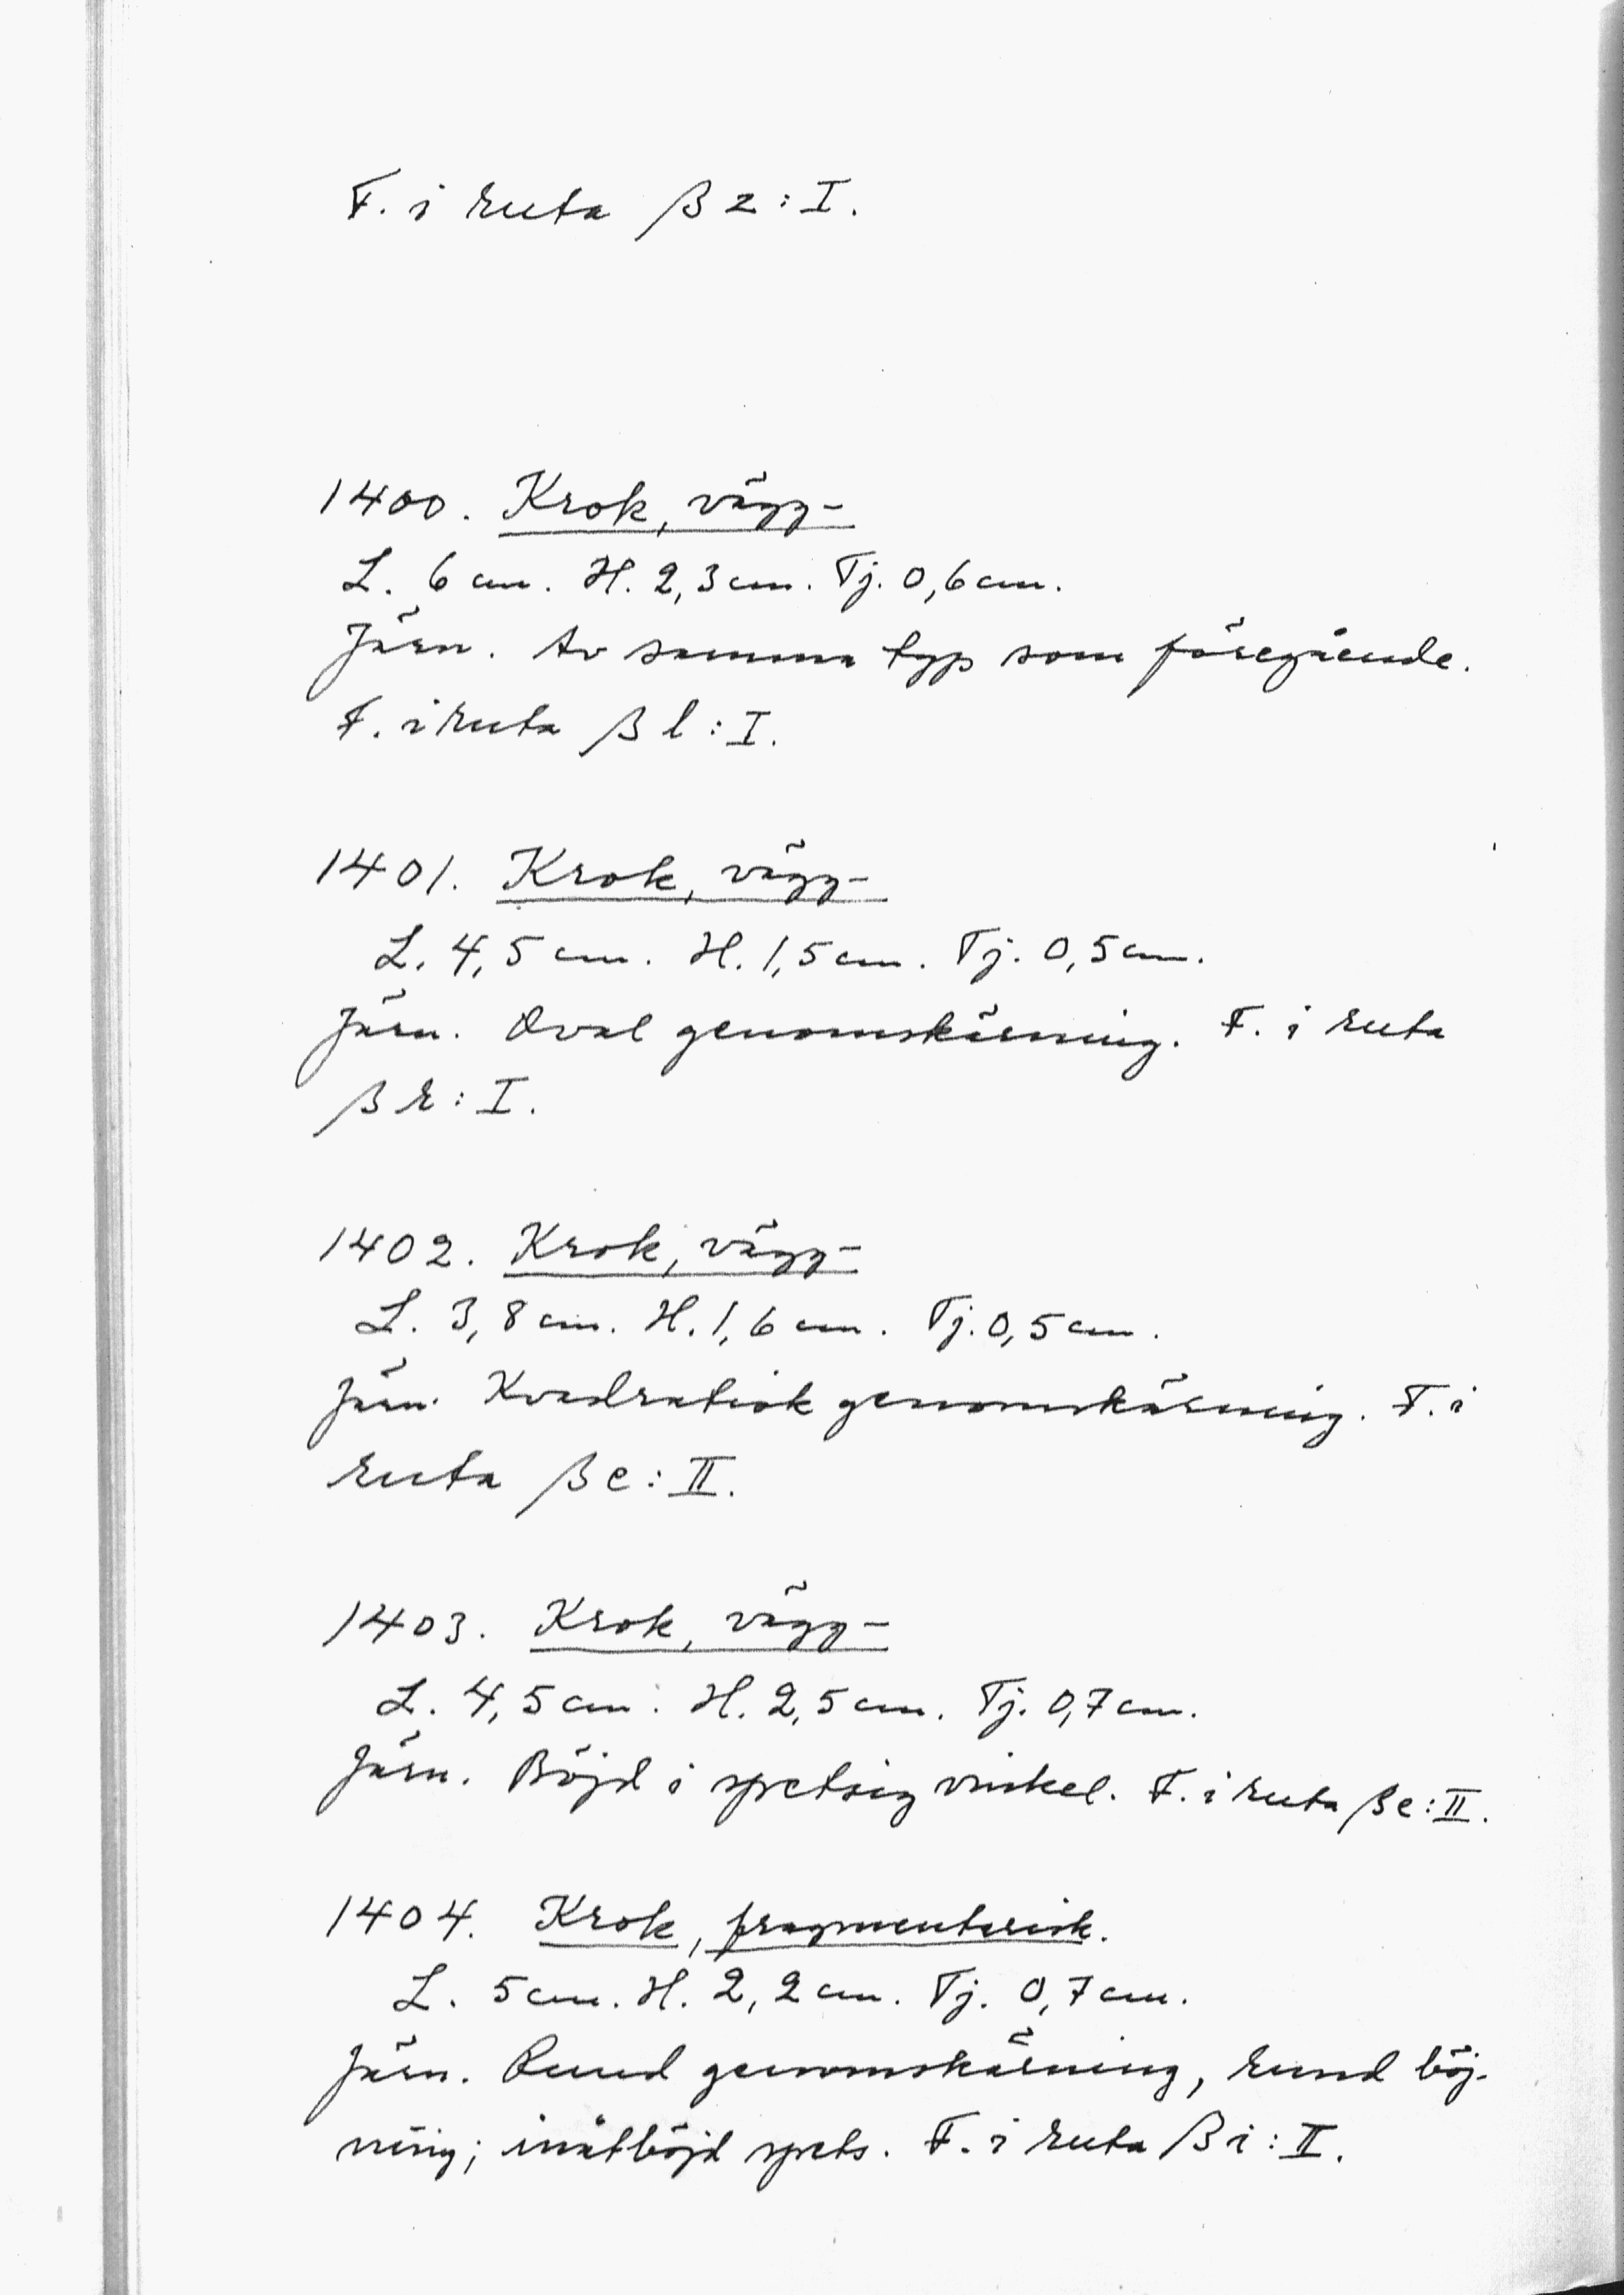 F. i ruta β z : I.
1400. Krok, vägg-
L. 6 cm. H. 2,3 cm. Tj. 0,6 cm.
Järn. Av samma typ som föregående.
F. i ruta β l : I.
1401. Krok, vägg-
L. 4,5 cm. H. 1,5 cm. Tj. 0,5 cm.
Järn. Oval genomskärning. F. i ruta
β r : I.
1402. Krok, vägg-
L. 3,8 cm. H. 1,6 cm. Tj. 0,5 cm.
Järn. Kvadratisk genomskärning. F. i
ruta β e : II.
1403. Krok, vägg-
L. 4,5 cm. H. 2,5 cm. Tj. 0,7 cm.
Järn. Böjd i spetsig vinkel. F. i ruta β e : II.
1404. Krok, fragmentarisk.
L. 5 cm. H. 2,2 cm. Tj. 0,7 cm.
Järn. Rund genomskärning, rund böj-
ning; inåtböjd spets. F. i ruta β i : II.